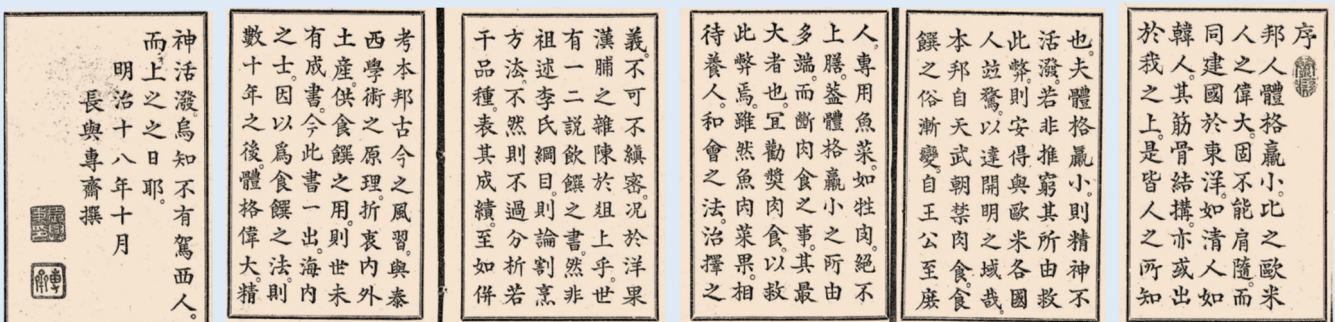 序
邦人體格羸小。比之歐米
人之偉大。固不能肩隨。而
同建國於東洋。如清人如
韓人。其筋骨結搆。亦或出
於我之上。是皆人之所知
也。夫體格羸小。則精神不
活潑。若非推窮其所由救
此弊。則安得與歐米各國
人竝驚。以達開明之域哉。
本邦自天武朝禁肉食。食
饌之俗漸變。自王公至庶
人。專用魚菜。如牲肉。絕不
上膳。蓋體格羸小之所由
多端。而斷肉食之事。其最
大者也。冝勸奬肉食。以救
此弊焉。雖然魚肉菜果。相
待養人。和會之法。治擇之
義。不可不縝審。况於洋果
漢脯之雜陳於俎上乎。世
有一二說飲饌之書。然非
祖述李氏綱目。則論割烹
方法。不然則不過分析若
干品種。表其成績。至如併
考本邦古今之風習。與泰
西學術之原理。折衷內外
土產。供食饌之用。則世未
有成書。今此書一出。海內
之士。因以爲食饌之法。則
數十年之後。體格偉大。精
神活潑。烏知不有駕西人。
而上之之日耶。
明治十八年十月
長與專齋撰